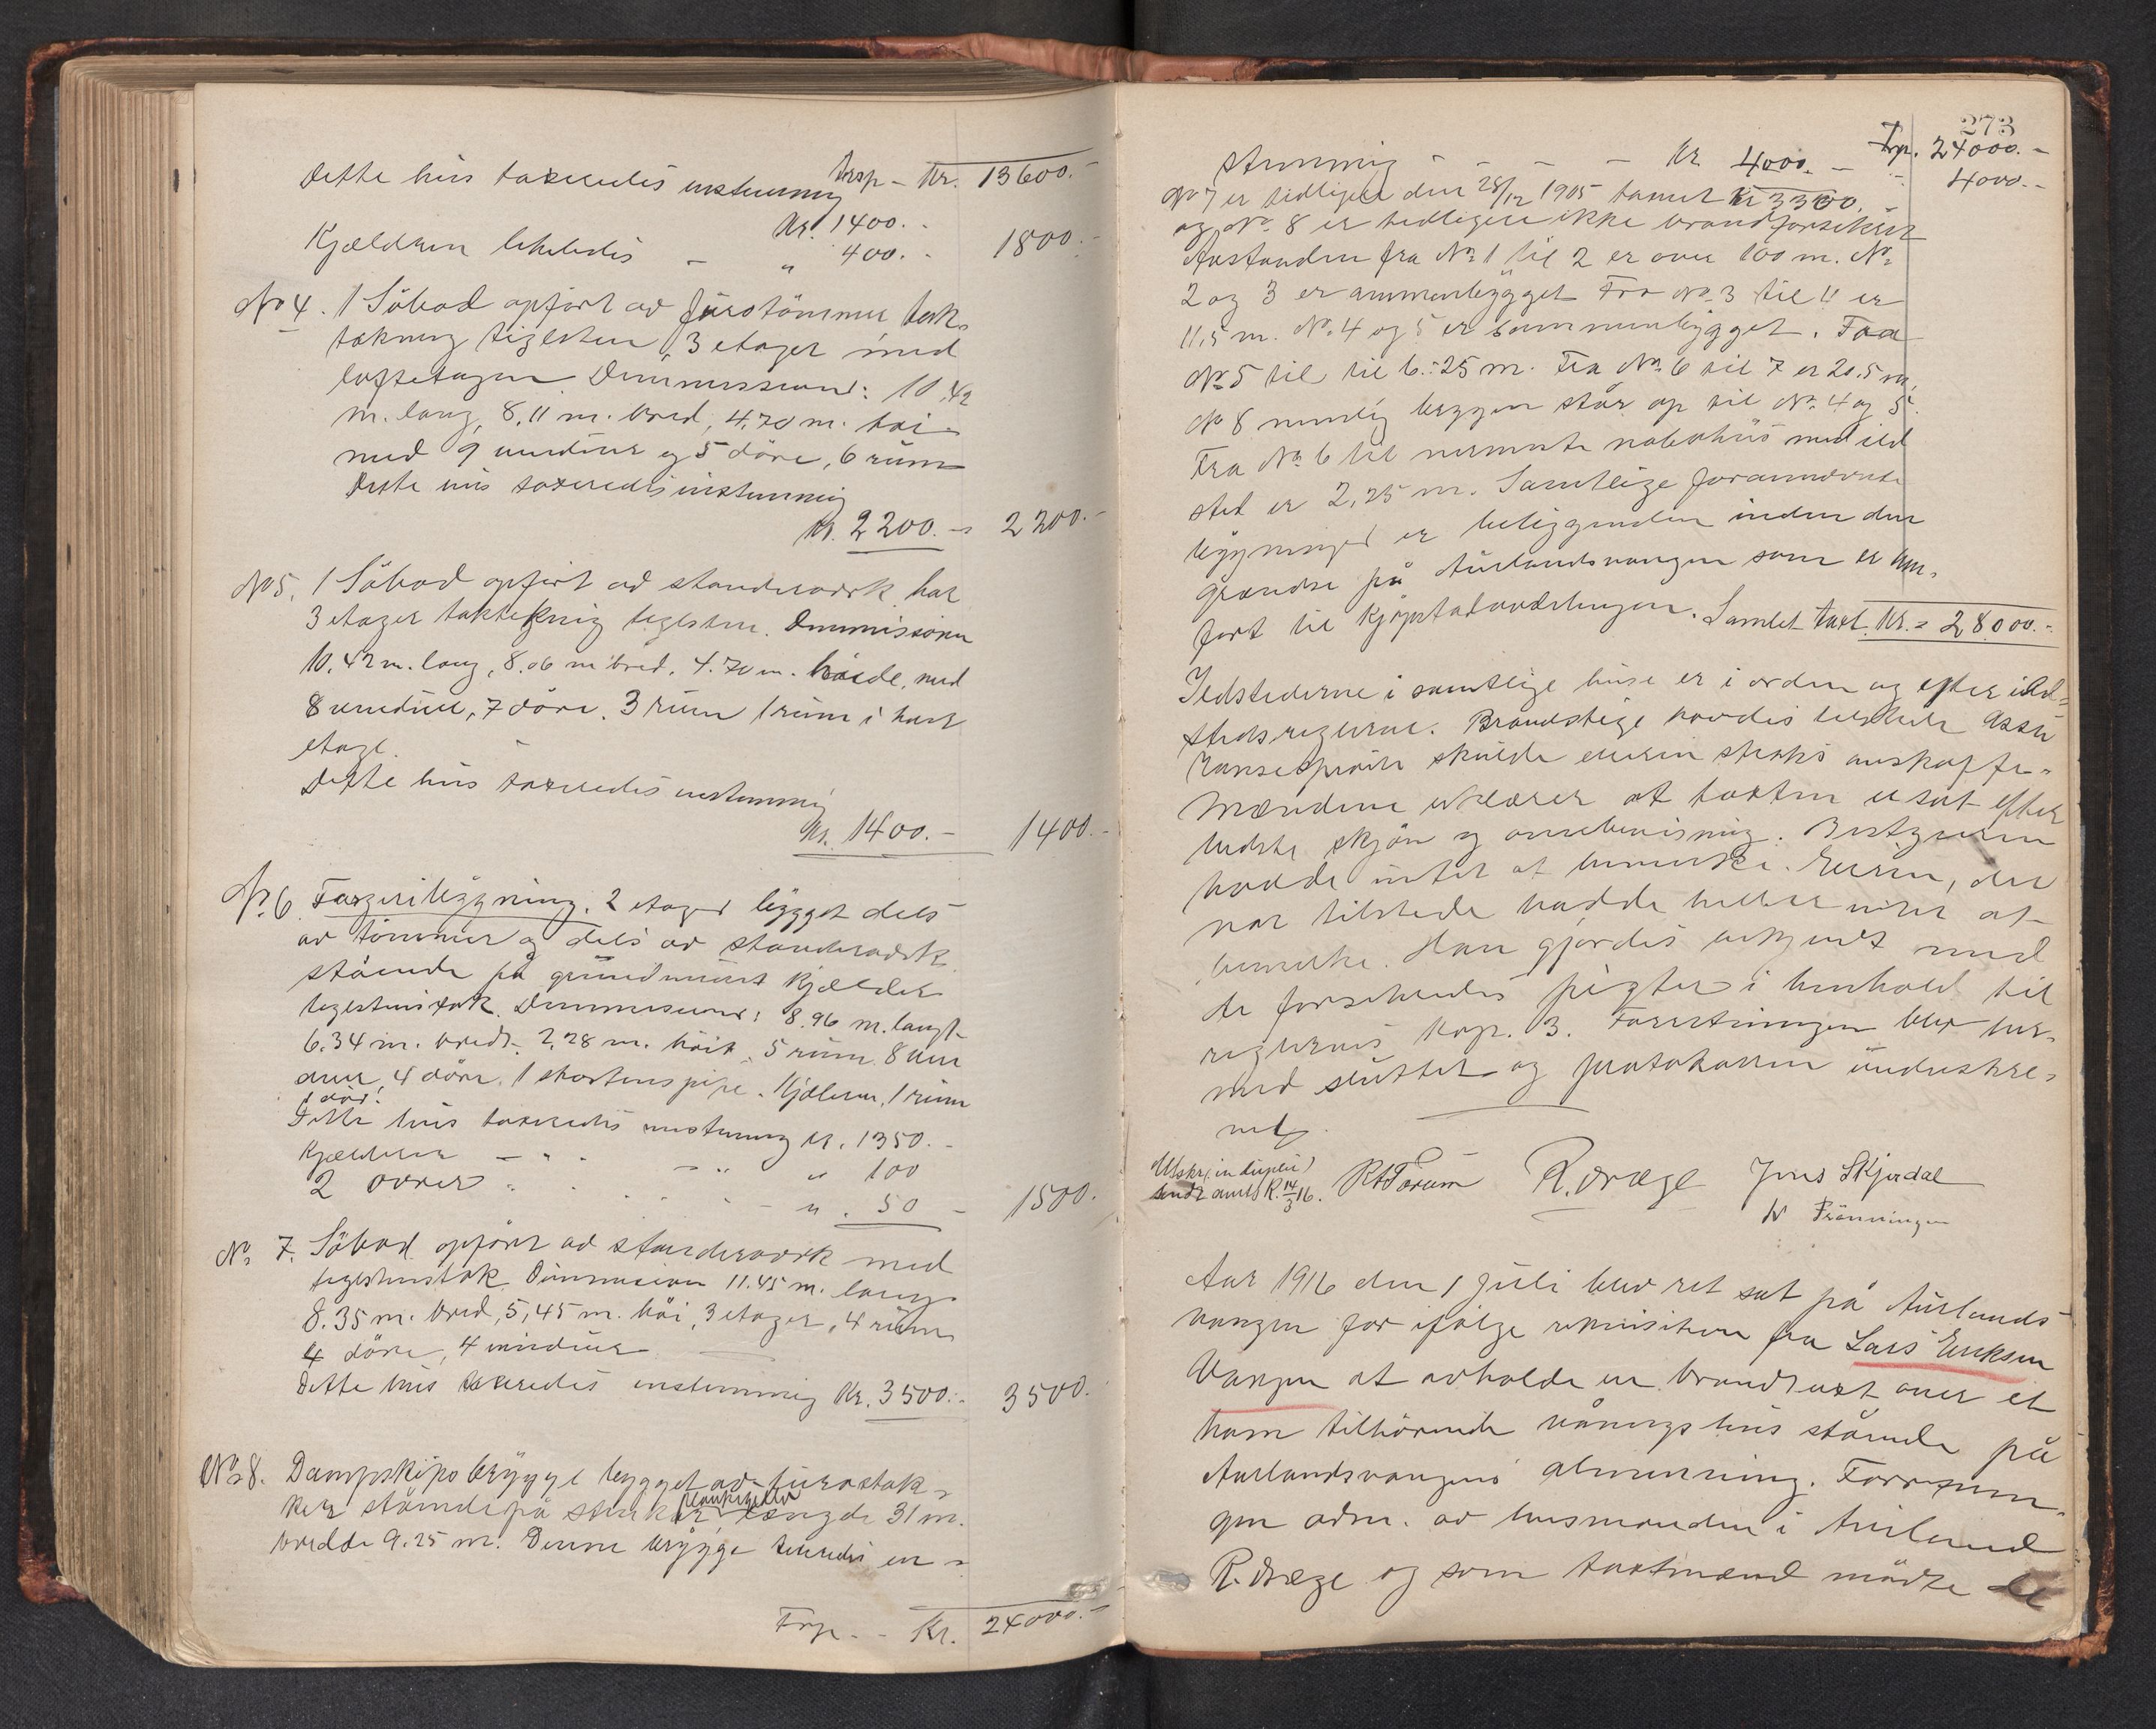 Trsp - Kr. 13600.-
Dette hus taxeredes enstemmig
Kr. 1400.-
Kjælderen likeledes - „ 400.- 1800.-
No 4. 1 Söbod opfört av furutömmer, tak-
tækning tiglsten, 3 etager med
loftetagen Dimmissioner: 10,42
m. lang, 8,11 m. bred, 4,70 m. höi
med 9 vinduer og 5 döre, 6 rüm
Dette hus taxeredes enstemmig
Kr. 2200.- 2200.-
No 5. 1 Söbod opfört av standerverk har
3 etager taktekning teglsten. Dimmissioner
10.42 m. lang, 8.06 m bred. 4.70 m. höide, med
8 vinduer, 7 döre. 3 rüm 1 rüm i hver
etage.
Dette hus taxeredes enstemmig
Kr. 1400.- 1400.-
No. 6 Fargeribygning. 2 etager bygget dels
av tömmer og dels av standerverk
stående på grundmuret kjælder
teglstenstak. Dimmissioner: 8.96 m. langt
6.34 m. bredt. 2,28 m. höit, 5 rüm 8 vin
duer, 4 döre. 1 skorstenspipe. Kjelleren, 1 rüm
1 dör.
Dette hus taxeredes enstemmig Kr. 1350.-
Kjælderen - „ - „ „ 100
2 ovner „ - „ . 50 - 1500.
No. 7. Söbod opfört av standerverk med
teglstenstak Dimmission 11.45 m. lang
8.35 m. bred, 5,45 m. höi, 3 etager, 4 rüm
4 döre, 4 vinduer
Dette hus taxeredes enstemmig Kr. 3500.- 3500.
No 8. Dampskips brygge bygget av furustok-
ker stående på stenkar, plankegulv længde 31 m.
bredde 9.25 m. Denne brygge taxeredes en-
Trsp. - Kr. 24000.-
273
Trsp. 24000.-
stemmig - - - - Kr 4000.- - 4000.-
No 7 er tidligere den 28/12 1905 taxert Kr 3300.
og No. 8 er tidligere ikke brandforsikret
Avstanden fra No 1 til 2 er over 100 m. No.
2 og 3 er ammenbygget Fra No. 3 til 4 er
11,5 m. No. 4 og 5 er sammenbygget. Fra
No. 5 til til 6: 25 m. Fra No. 6 til 7 er 20.5 m,
No 8 nemlig bryggen står op til No. 4 og 5.
Fra No. 6 til nermeste nabohus med ild
sted er 2,25 m. Samtlige forannævnte
bygninger er beliggenden inden den
grændse på Aurlandsvangen som er hen-
fört til kjöpstadavdelingen. Samlet taxt. Kr. = 28000.-
Ildstederne i samtlige huse er i orden og efter ild-
stedsreglerne. Brandstige havdes tilstede Assu
ranesespröite skulde eieren straks anskaffe.
Mændene erklærer at taxten er sat efter
bedste skjön og overbevisning. Bestyreren
havde intet at bemerke. Eieren, der
var tilstede hadde heller intet at
bemerke. Han gjordes bekjendt med
de forsikredes pligter i henhold til
reglernes kap. 3. Forretningen blev her-
med sluttet og protokollen underskre-
vet.
Utskr. (in duplo)
sendt amtet R. 14/3 16. R. Dræge Jens Skjerdal
Aar 1916 den 1 Juli blev ret sat på Aurlands
vangen for ifölge rekvisition fra Lars Eriksen
Vangen at avholde en brandtaxt over et
ham tilhörende våningshus stående på
Aurlandsvangens almenning. Forretnin-
gen adm. av lensmanden i Aurland
R. Dræge og som taxtmænd mödte de